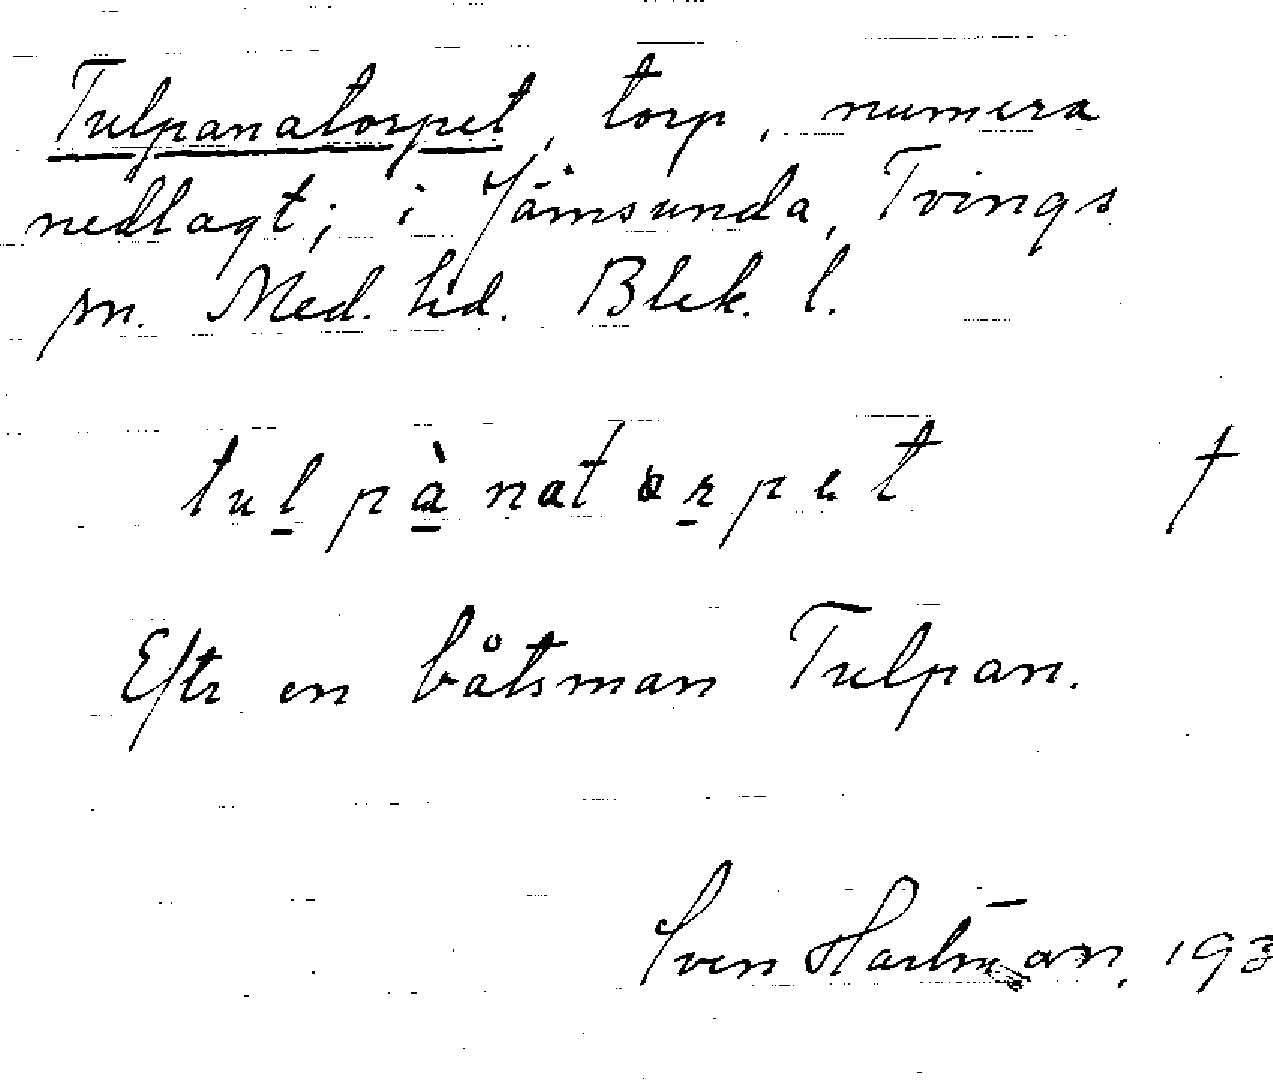 Tulpanatorpet, torp, numera
nedlagt; i Jämsunda, Tvings
sn. Med. hd. Blek. l.
tulpànatorpet †
Eftr en båtsman Tulpan.
Sven Hartman, 193